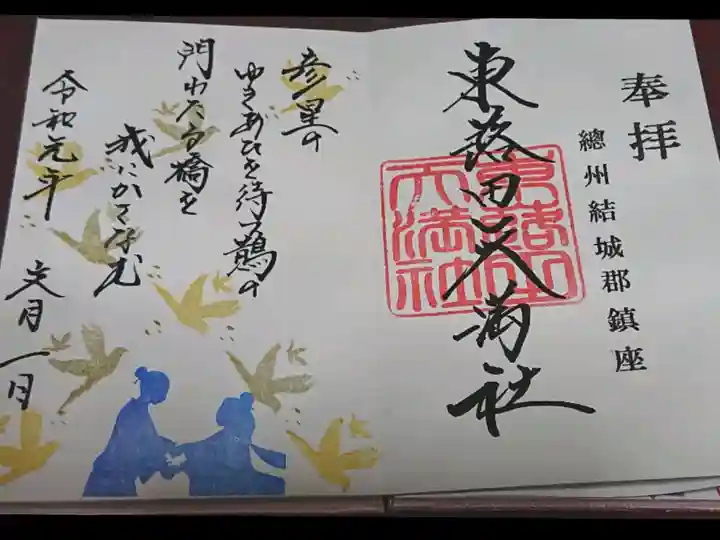 奉拝
總州結城郡鎮座
東蕗田天満社
東蕗田
天満社
彦星の
ゆきあひを待つ鵲の
門わたる橋を
我にかさなむ
令和元年
文月一日